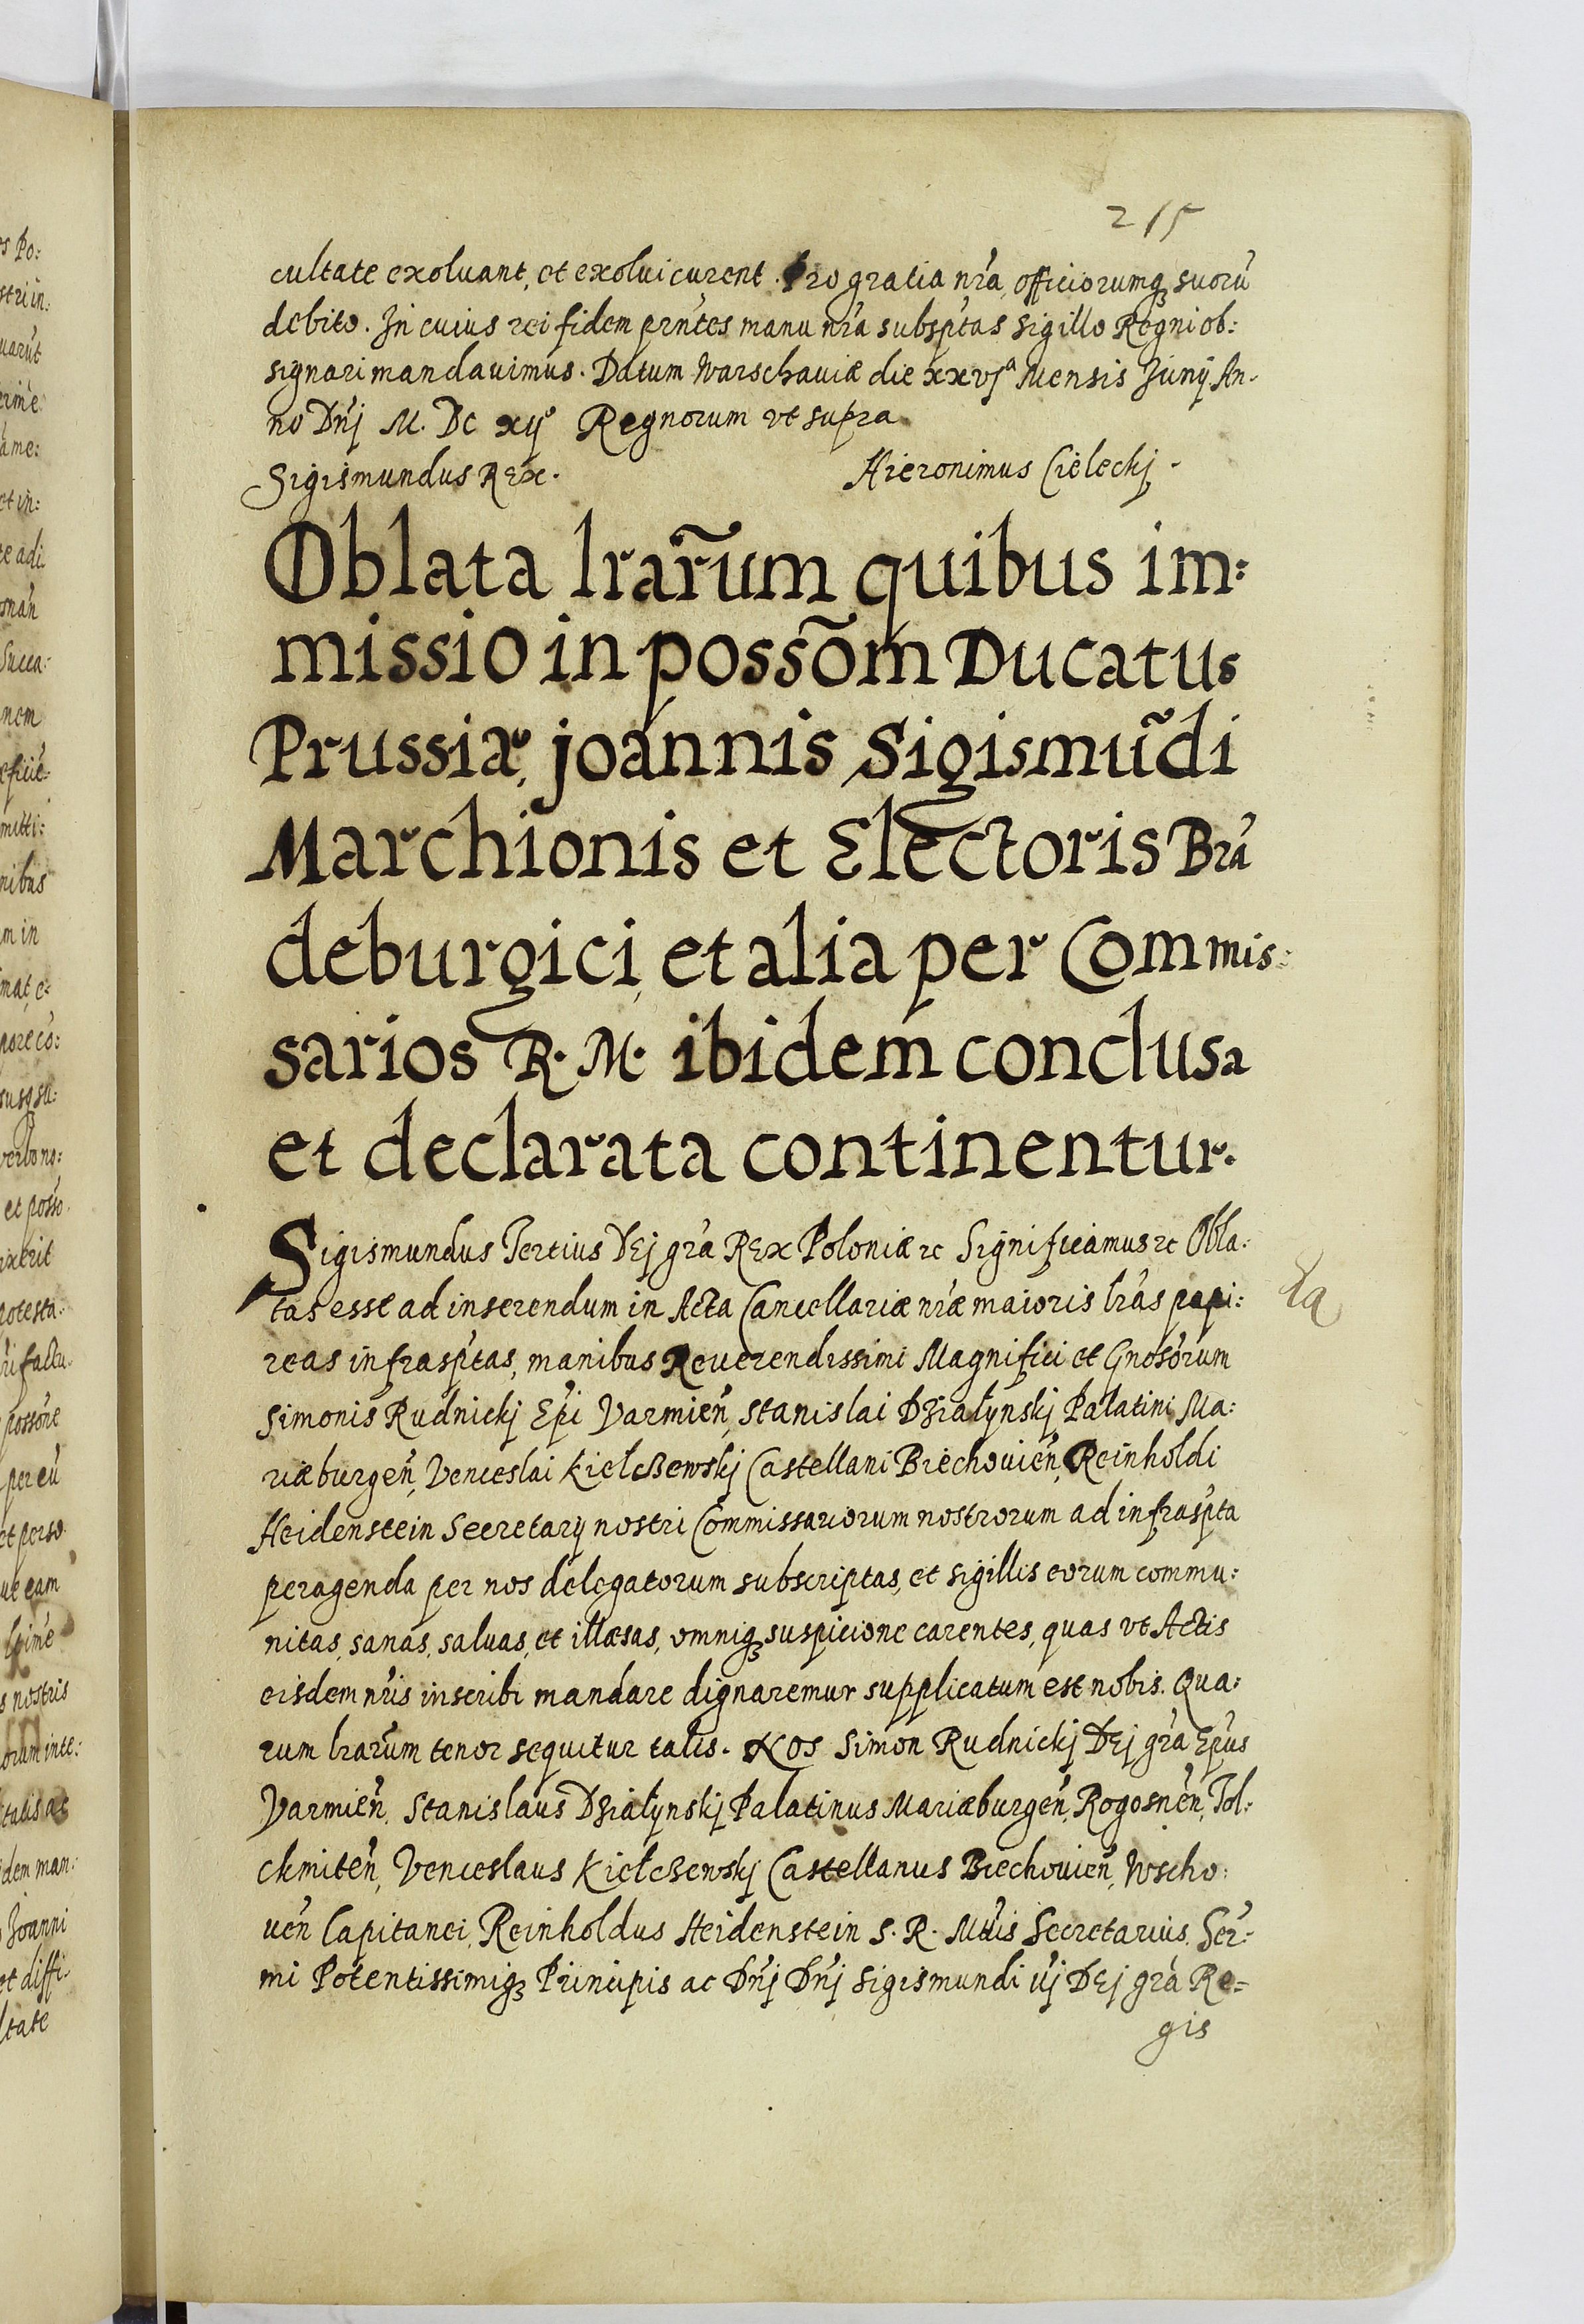 215
cultate exoluant, et exolui curent. Pro gratia nr̃a, officiorumq̃ suorũ
debito. In cuius rei fidem prñtes manu nr̃a subsp̃tas sigillo Regni ob:
signari mandauimus. Datum Warschauiæ die xxvjª Mensis Junij An-
no Dñj M. DC xijº Regnorum vt supra
Sigismundus REx. Hieronimus Cieleckj.
Oblata lrar̃um quibus im:
missio in possõm Ducatus
Prussiæ, joannis Sigismũdi
Marchionis et Electoris Brã
deburgici, et alia per Commis:
sarios R. M. ibidem conclusa
et declarata continentur.
Sigismundus Tertius DEj gr̃a REx Poloniæ zc Significamus zc Obla:
tas esse ad inserendum in Acta Cancellariæ nr̃æ maioris lr̃as papi:
reas infrasp̃tas, manibus Reuerendissimi Magnifici et Gnosõrum
Simonis Rudnickj Ep̃i Varmieñ, Stanislai Dzialynskj Palatini Ma:
riæburgeñ, Venceslai Kielczewskj Castellani Biechouieñ, Reinholdi
Heidenstein Secretarij nostri Commissariorum nostrorum ad infrasp̃ta
peragenda per nos delegatorum subscriptas, et sigillis eorum commu:
nitas, sanas, saluas, et illæsas, omniq̃ suspicione carentes, quas vt Actis
eisdem nr̃is inscribi mandare dignaremur supplicatum est nobis. Qua:
rum lrar̃um tenor sequitur talis. Nos Simon Rudnickj DEj gr̃a Ep̃us
Varmieñ, Stanislaus Dzialynskj Palatinus Mariæburgeñ, Rogosneñ, Tol:
ckmiteñ, Venceslaus Kielczewskj Castellanus Biechouieñ, Wscho:
ueñ Capitanei, Reinholdus Heidenstein S. R. Mtĩs Secretarius, Ser̃-
mi Potentissimiq̃ Principis ac Dñj Dñj Sigismundi iij DEj gr̃a Re-
gis